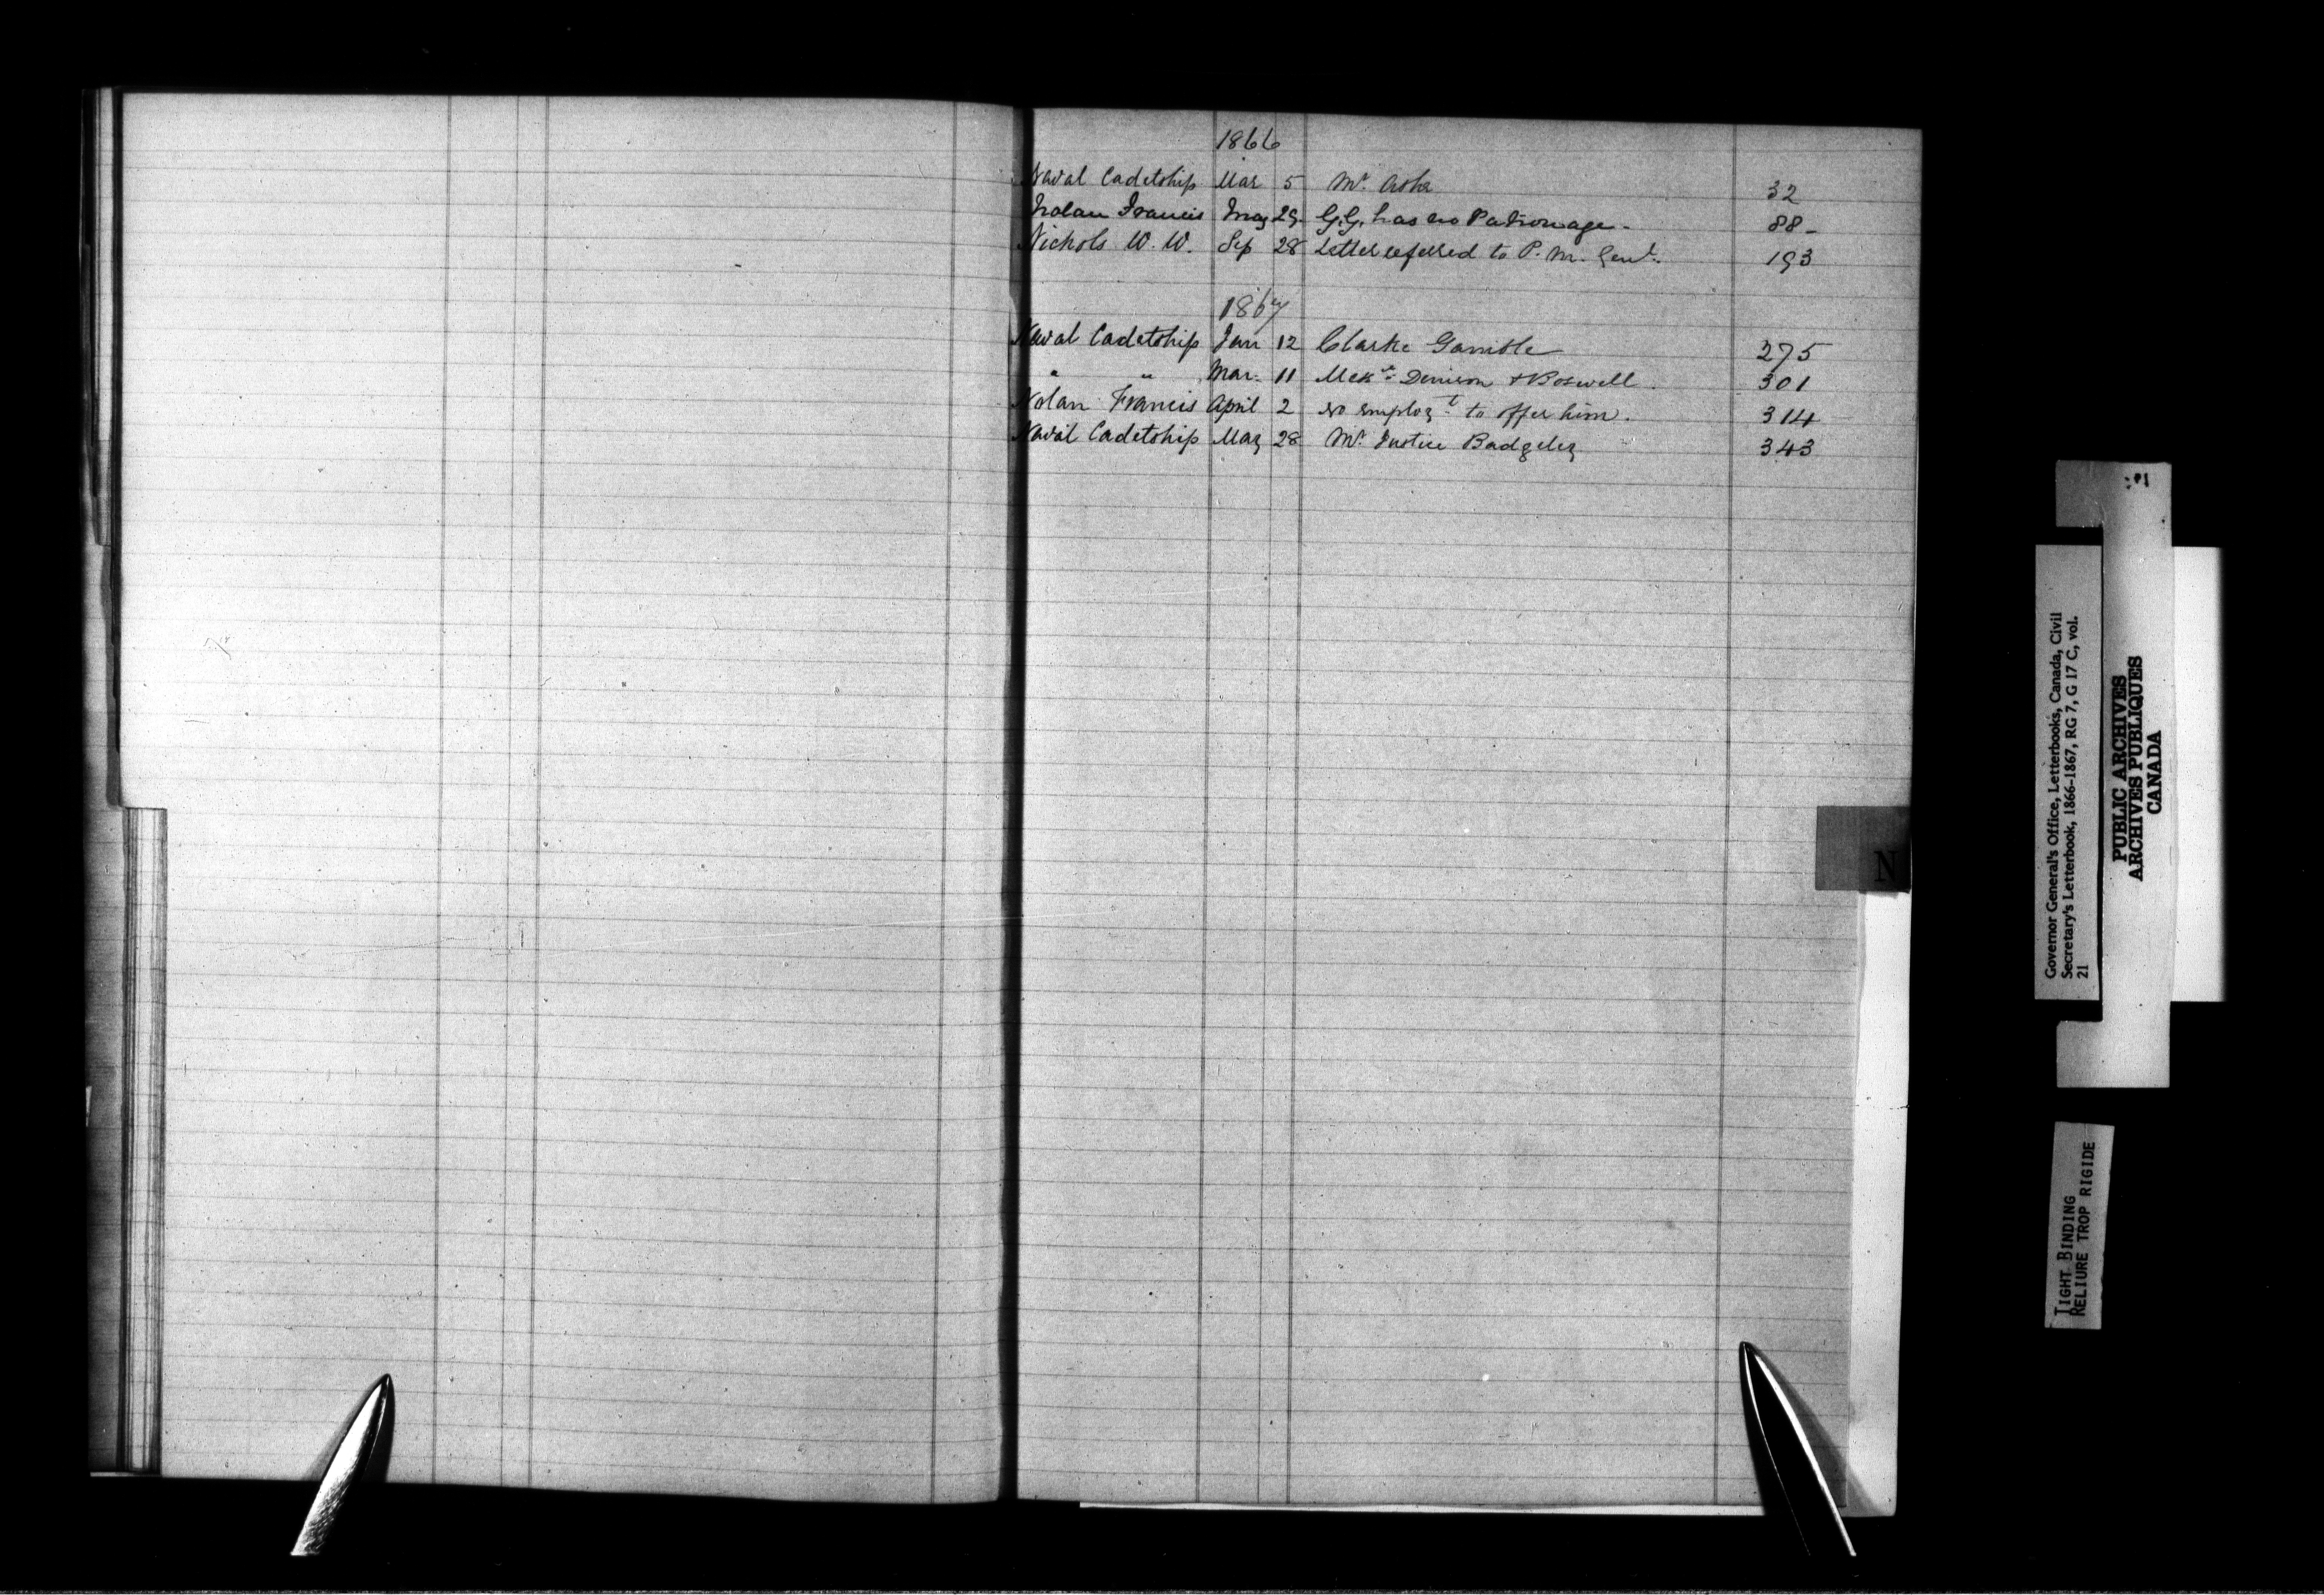 1866
Naval Cadetship Mar 5 Mr. Ashe 32
Nolan Francis May 29. G.G. has no Patronage - 88 -
Nichols W. W. Sep 28 Letter referred to P. M. Genl. 193
1867
Naval Cadetship Jan 12 Clarke Gamble 275
" " Mar. 11 Messrs. Denison & Boswell. 301
Nolan Francis April 2 no employt. to offer him. 314
Naval Cadetship May 28 Mr. Justice Badgley 343
N
Governor General's Office, Letterbooks, Canada, Civil
Secretary's Letterbook, 1866-1867, RG 7, G 17 C, vol.
21
PUBLIC ARCHIVES
ARCHIVES PUBLIQUES
CANADA
TIGHT BINDING
RELIURE TROP RIGIDE